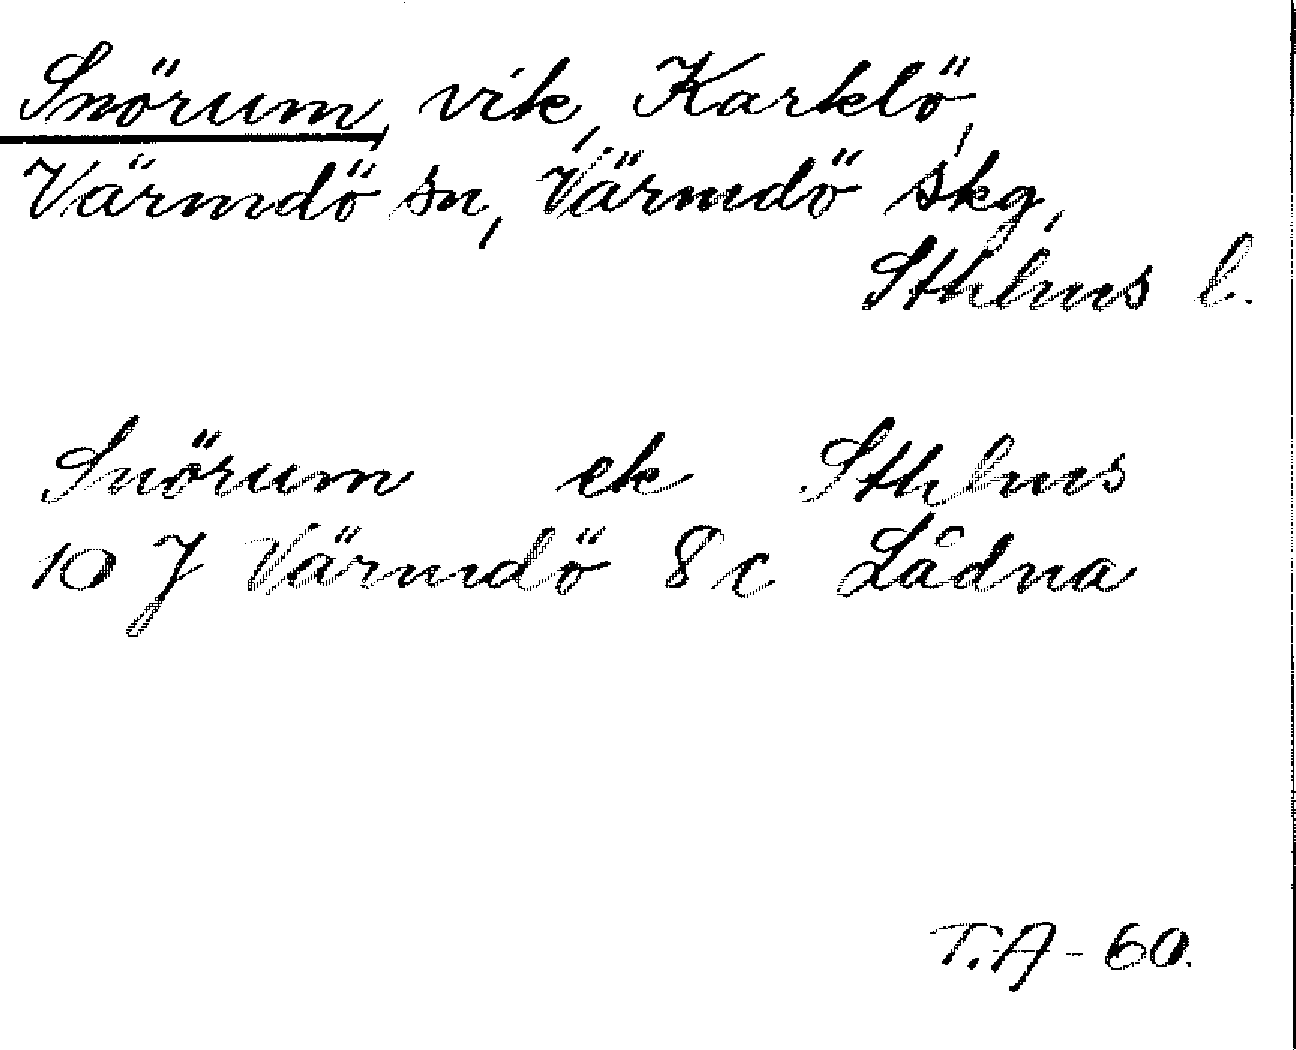 Snörum, vik, Karklö,
Värmdö sn, Värmdö skg,
Sthlms l.
Snörum ek Sthlms
10 J Värmdö 8 c Lådna
T.A - 60.